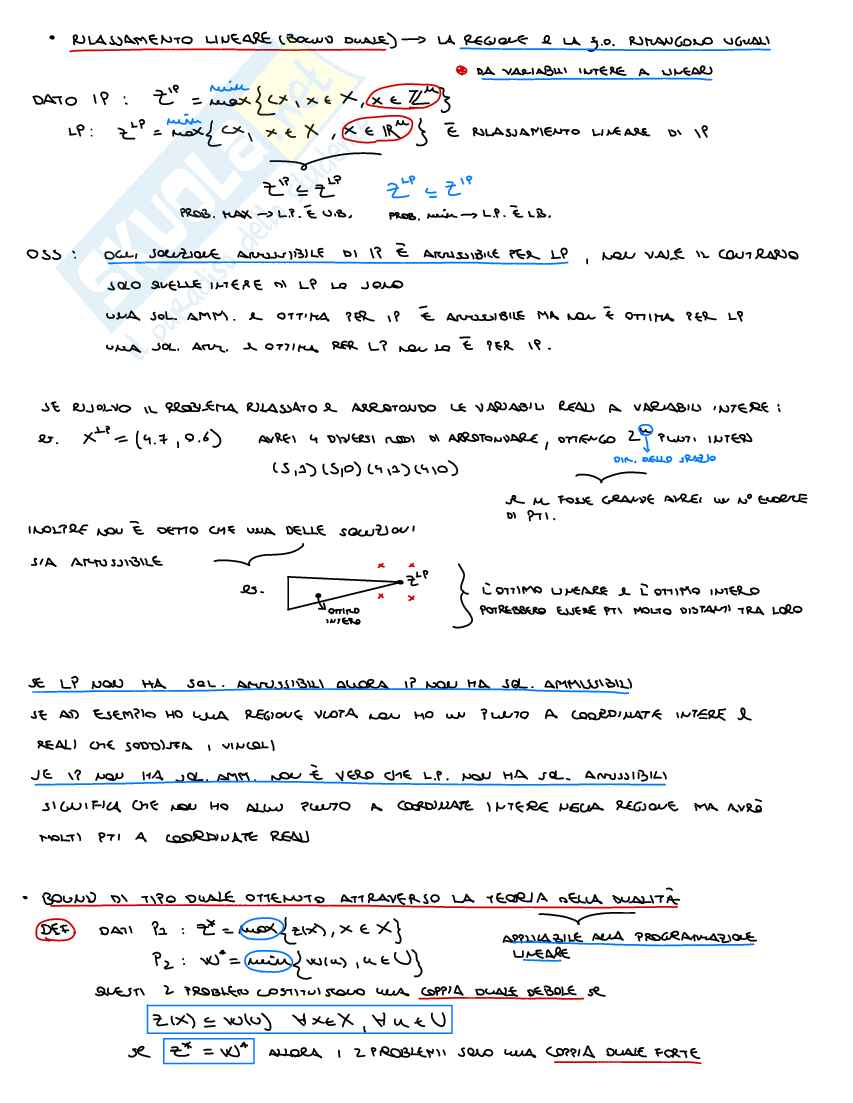 • RILASSAMENTO LINEARE (BOUND DUALE) → LA REGIONE E LA f.o. RIMANGONO UGUALI
• DA VARIABILI INTERE A LINEARI
min
DATO IP : Z^IP = max { cx, x ∈ X, x ∈ Z^n }
min
LP: Z^LP = max { cx, x ∈ X, x ∈ R^n } È RILASSAMENTO LINEARE DI IP
Z^IP ≤ Z^LP Z^LP ≤ Z^IP
PROB. MAX → L.P. È U.B. PROB. min → L.P. È L.B.
OSS : OGNI SOLUZIONE AMMISSIBILE DI IP È AMMISSIBILE PER LP, NON VALE IL CONTRARIO
SOLO QUELLE INTERE DI LP LO SONO
UNA SOL. AMM. E OTTIMA PER IP È AMMISSIBILE MA NON È OTTIMA PER LP
UNA SOL. AMM. E OTTIMA PER LP NON LO È PER IP.
SE RISOLVO IL PROBLEMA RILASSATO E ARROTONDO LE VARIABILI REALI A VARIABILI INTERE :
es. X^LP = (4.7, 0.6) AVREI 4 DIVERSI MODI DI ARROTONDARE, OTTENGO 2^n PUNTI INTERI
DIM. DELLO SPAZIO
(5,1) (5,0) (4,1) (4,0)
SE n FOSSE GRANDE AVREI UN N° ENORME
DI PTI.
INOLTRE NON È DETTO CHE UNA DELLE SOLUZIONI
SIA AMMISSIBILE
es.
Z^LP
OTTIMO
INTERO
L'OTTIMO LINEARE E L'OTTIMO INTERO
POTREBBERO ESSERE PTI MOLTO DISTANTI TRA LORO
SE LP NON HA SOL. AMMISSIBILI ALLORA IP NON HA SOL. AMMISSIBILI
SE AD ESEMPIO HO UNA REGIONE VUOTA NON HO UN PUNTO A COORDINATE INTERE E
REALI CHE SODDISFA I VINCOLI
SE IP NON HA SOL. AMM. NON È VERO CHE L.P. NON HA SOL. AMISSIBILI
SIGNIFICA CHE NON HO ALCUN PUNTO A COORDINATE INTERE NELLA REGIONE MA AVRÒ
MOLTI PTI A COORDINATE REALI
• BOUND DI TIPO DUALE OTTENUTO ATTRAVERSO LA TEORIA DELLA DUALITÀ
APPLICABILE ALLA PROGRAMMAZIONE
LINEARE
DEF DATI P1 : Z* = max { z(x), x ∈ X }
P2 : W* = min { w(u), u ∈ U }
QUESTI 2 PROBLEMI COSTITUISCONO UNA COPPIA DUALE DEBOLE SE
Z(x) ≤ W(u) ∀x∈X, ∀u∈U
SE Z* = W* ALLORA I 2 PROBLEMI SONO UNA COPPIA DUALE FORTE
SKUOLA.net
il paradiso dello studente